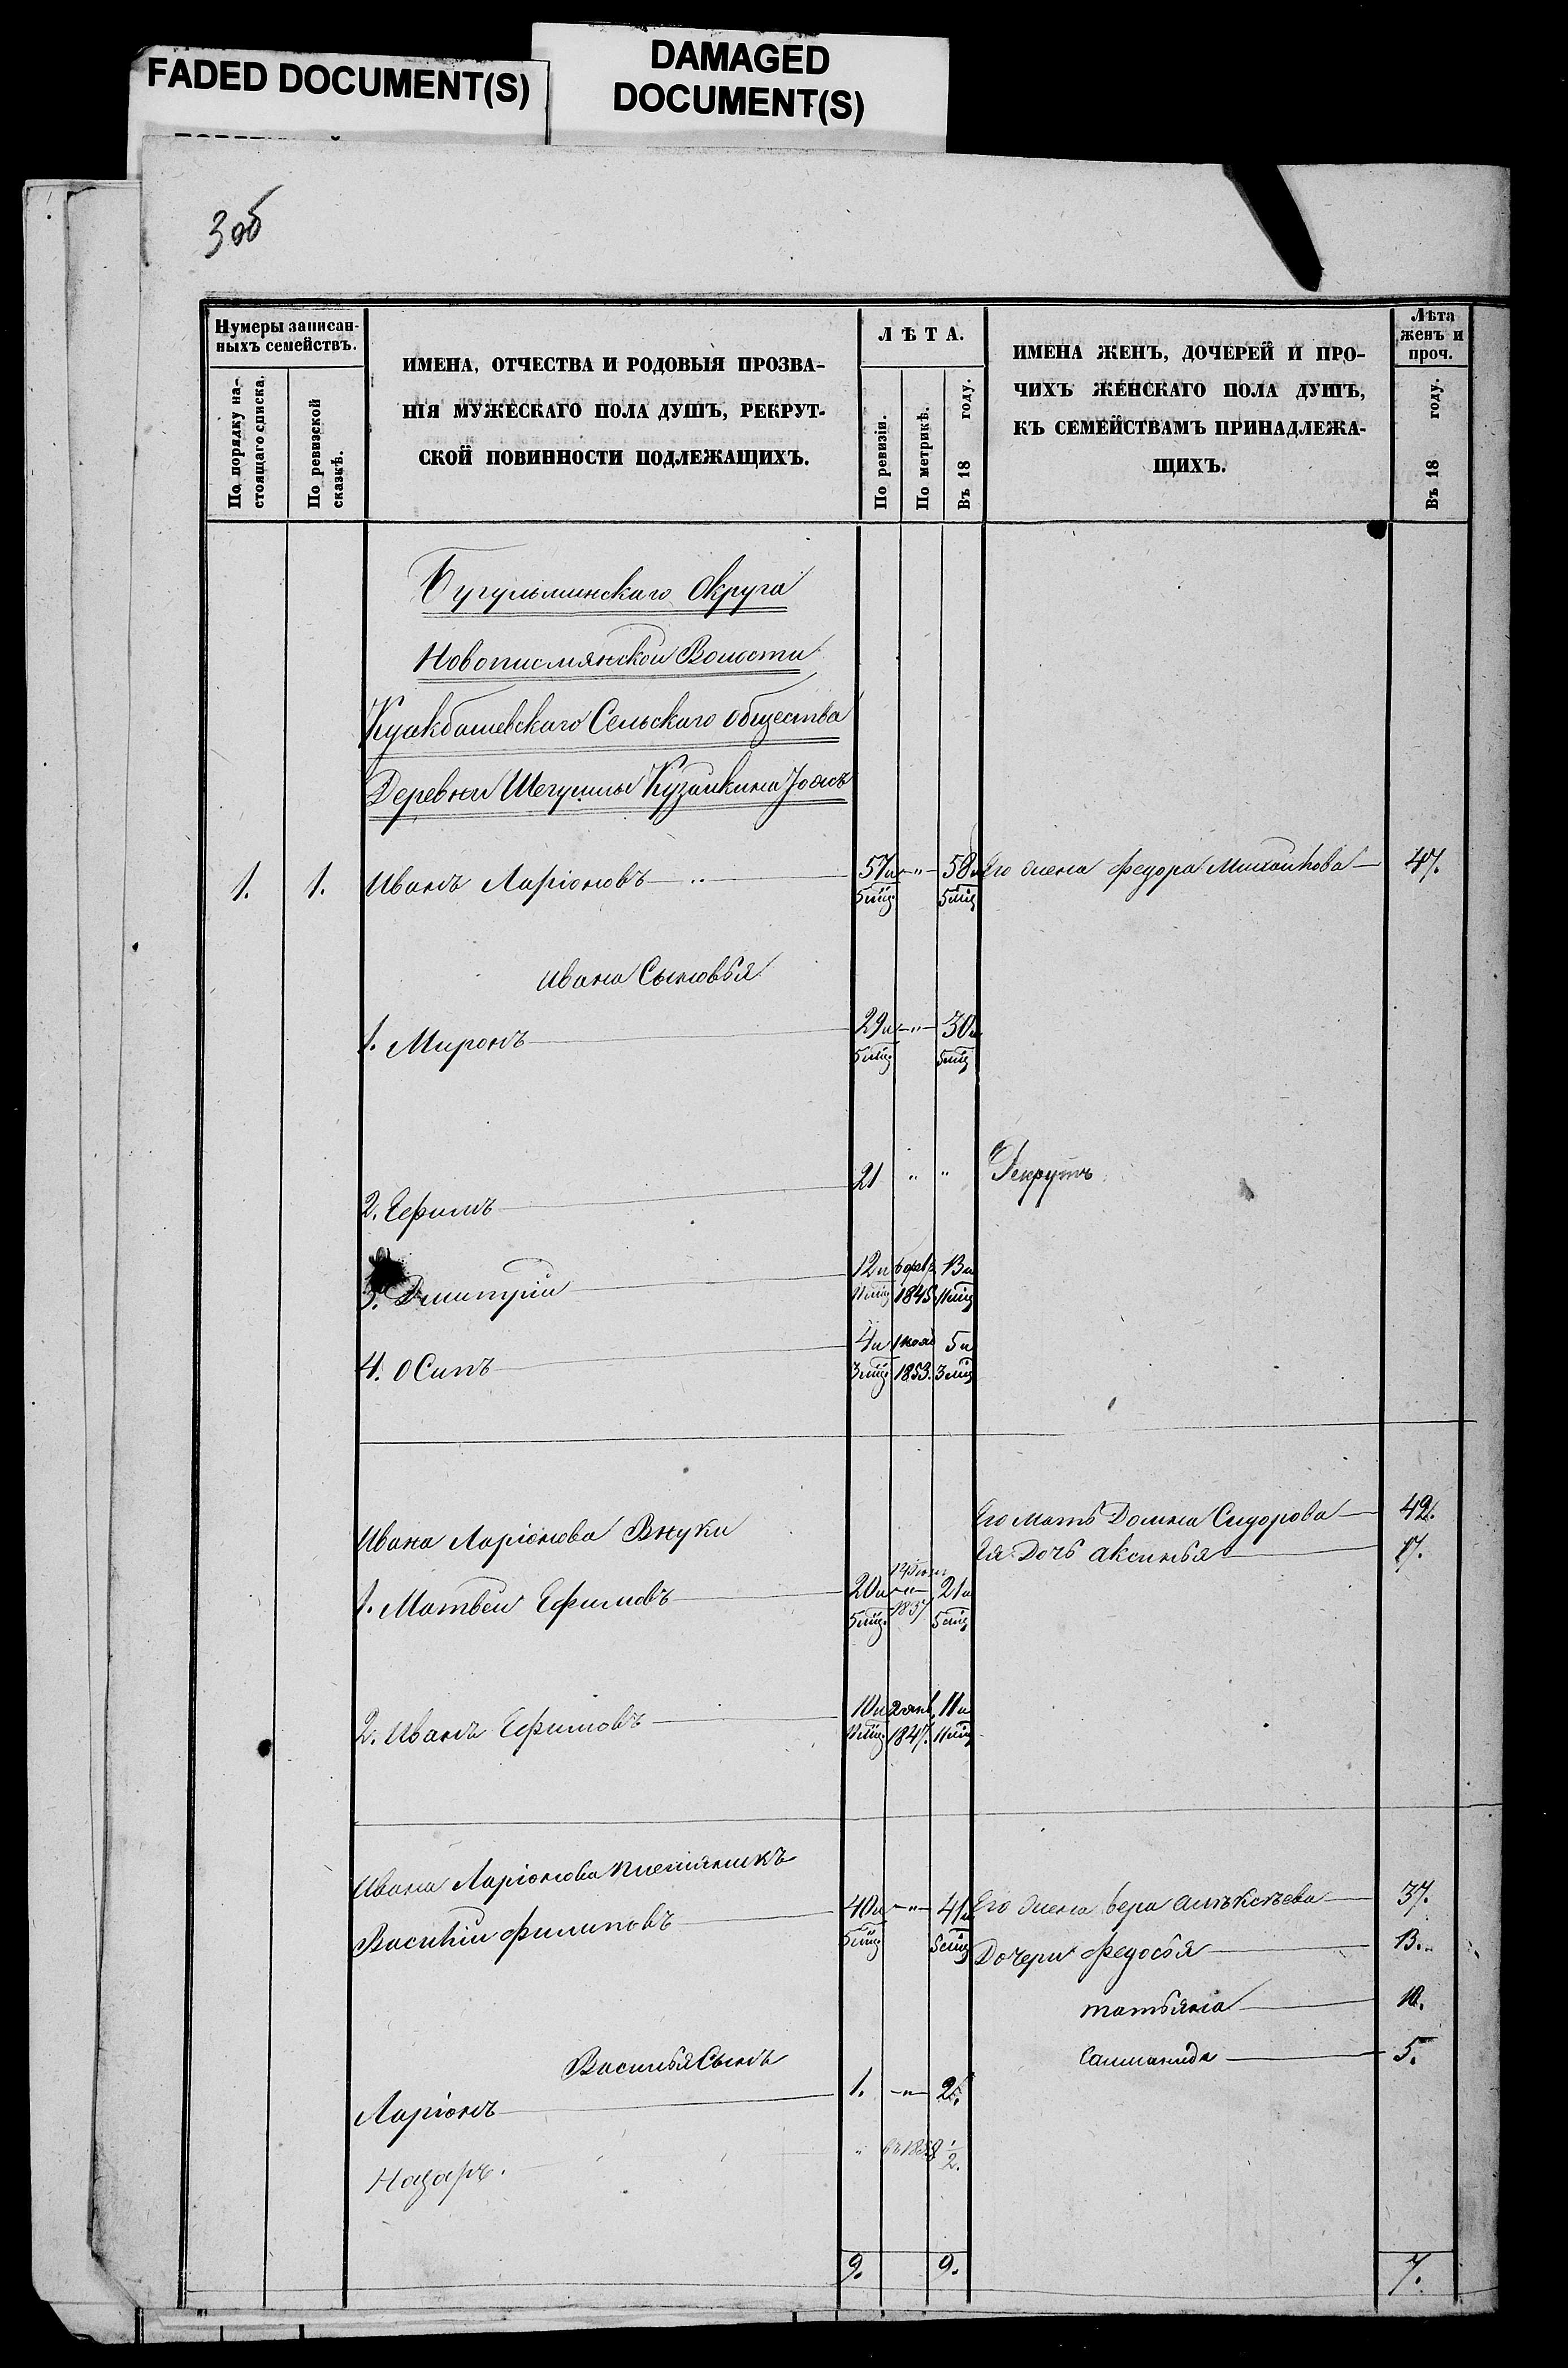 FADED DOCUMENT(S)
DAMAGED
DOCUMENT(S)
3 об
Нумеры записан-
ныхъ семействъ.
По порядку на-
стоящаго списка.
По ревизской
сказкѣ.
ИМЕНА, ОТЧЕСТВА И РОДОВЫЯ ПРОЗВА-
НІЯ МУЖЕСКАГО ПОЛА ДУШЪ, РЕКРУТ-
СКОЙ ПОВИННОСТИ ПОДЛЕЖАЩИХЪ.
ЛѢТА.
По ревизіи.
По метрикѣ.
Въ 18 году.
ИМЕНА ЖЕНЪ, ДОЧЕРЕЙ И ПРО-
ЧИХЪ ЖЕНСКАГО ПОЛА ДУШЪ,
КЪ СЕМЕЙСТВАМЪ ПРИНАДЛЕЖА-
ЩИХЪ.
Лѣта
женъ и
проч.
Въ 18 году.
Бугульминскаго Округа
Новописмянской Волости
Куакбашевскаго Сельскаго общества
Деревни Шегурши Кузайкина
1. 1. Иванъ Ларіоновъ 57 и 5 мц. 58 и 5 мц Его жена Федора Михайлова 47.
Ивана Сыновья
1. Миронъ 29 и 5 мц. 30 и 5 мц
2. Ефимъ 21 " " Рекрутъ
3. Дмитрій 12 и 11 мц 6 февр. 1845 13 и 11 мц
4. Осипъ 4 и 3 мц. 1853. 5 и 3 мц
Ивана Ларіонова Внуки
Его мать Домна Сидорова 42.
Ея Дочь аксинья 17.
1. Матвей Ефимовъ 20 и 5 мц. 1837 21 и 5 мц
2. Иванъ Ефимовъ 10 и 11 мц. 2 янв. 1847. 11 и 11 мц
Ивана Ларіонова племяникъ
Василій Филиповъ 40 и 5 мц 41 и 5 мц Его жена вера алѣксѣева 37.
Дочери Федосья 13.
татьяна 10.
Саломанида 5.
Василья Сынъ
Ларіонъ 1. 2.
Назаръ. " въ 1858 1/2.
9. 9. 7.